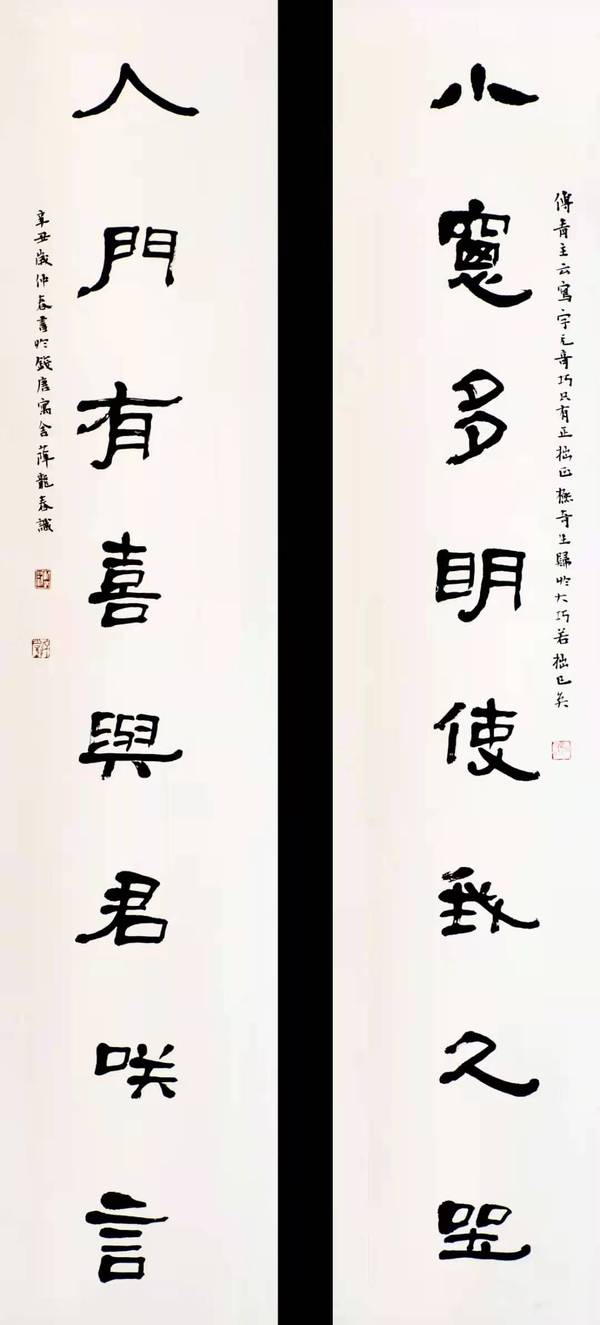 傅青主云寫字无奇巧只有正拙正極奇生歸於大巧若拙已矣
小窻多明使我久坐
入門有喜與君咲言
辛丑歲仲春書於錢唐寓舍薛龍春識